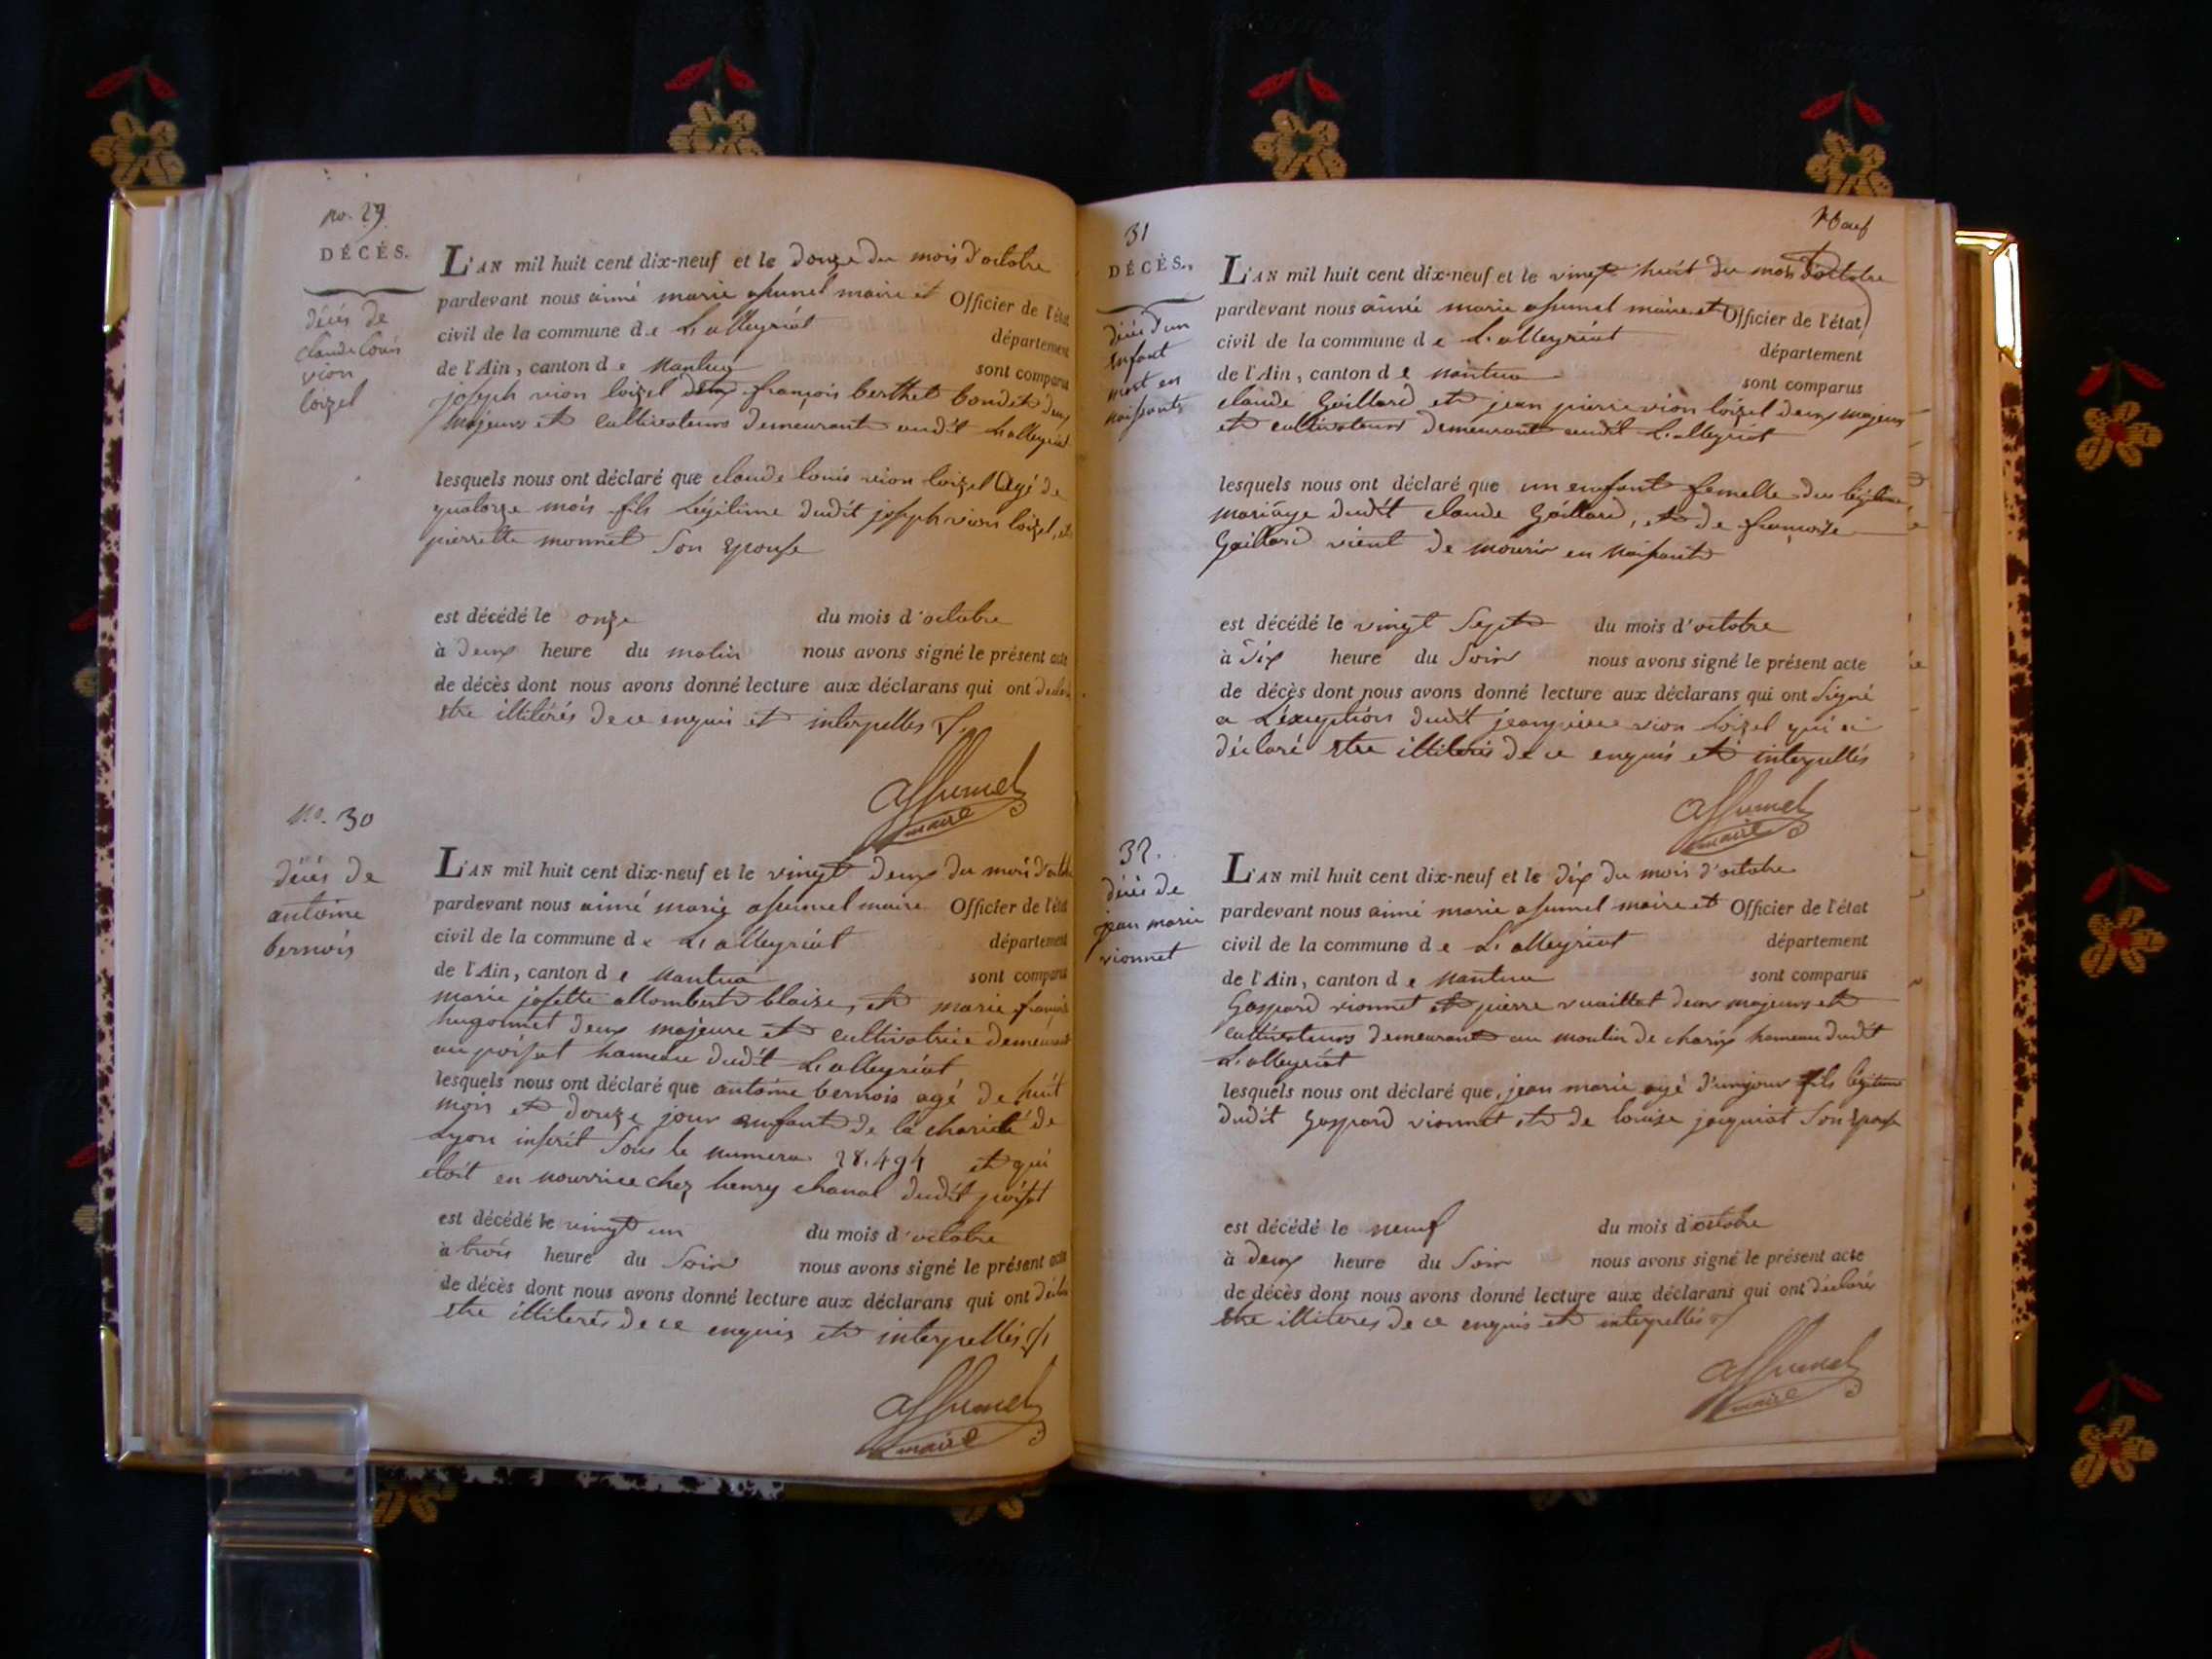 no. 29
DÉCÈS.
décès de
claude louis
vion
loizel
L'AN mil huit cent dix-neuf et le douze du mois d'octobre
pardevant nous aimé marie assumel maire et Officier de l'état
civil de la commune de L'alleyriat département
de l'Ain, canton de Nantua sont comparus
joseph vion loizel françois berthet bondet deux
Majeurs et cultivateurs demeurant audit L'alleyriat
lesquels nous ont déclaré que claude louis vion loizel agé de
quatorze mois fils légitime dudit joseph vion loizel, et
pierrette monnet son epouse
est décédé le onze du mois d'octobre
à deux heure du matin nous avons signé le présent acte
de décès dont nous avons donné lecture aux déclarans qui ont déclaré
etre illitérés de ce enquis et interpellés
assumel
maire
No. 30
décès de
antoine
bernois
L'AN mil huit cent dix-neuf et le vingt deux du mois d'octobre
pardevant nous aimé marie assumel maire Officier de l'état
civil de la commune de L'alleyriat département
de l'Ain, canton de Nantua sont comparus
marie josette allombert blaise, et marie françoise
hugonnet deux majeure et cultivatrice demeurant
au poisat hameau dudit L'alleyriat
lesquels nous ont déclaré que antoine bernois agé de huit
mois et douze jour enfant de la charité de
Lyon inscrit sous le numero 28.494 et qui
étoit en nourrice chez henry chanal dudit poisat
est décédé le vingt un du mois d'octobre
à trois heure du Soir nous avons signé le présent acte
de décès dont nous avons donné lecture aux déclarans qui ont déclaré
etre illiterés de ce enquis et interpellés
assumel
maire
31
DÉCÈS.
décès d'un
enfant
mort en
naissant
L'AN mil huit cent dix-neuf et le vingt huit du mois d'octobre
pardevant nous aimé marie assumel maire et Officier de l'état
civil de la commune de L'alleyriat département
de l'Ain, canton de Nantua sont comparus
claude Gaillard et jean pierre vion loizel deux majeurs
et cultivateurs demeurant audit L'alleyriat
lesquels nous ont déclaré que un enfant femelle du légitime
mariage dudit claude Gaillard, et de françoise
Gaillard vient de mourir en naissant
est décédé le vingt Sept du mois d'octobre
à Six heure du Soir nous avons signé le présent acte
de décès dont nous avons donné lecture aux déclarans qui ont Signé
a L'exception dudit jean pierre vion loizel qui a
déclaré etre illiterés de ce enquis et interpellés
assumel
maire
32.
décès de
jean marie
vionnet
L'AN mil huit cent dix-neuf et le dix du mois d'octobre
pardevant nous aimé marie assumel maire et Officier de l'état
civil de la commune de L'alleyriat département
de l'Ain, canton de Nantua sont comparus
Gaspard vionnet et pierre vuaillat deux majeurs et
cultivateurs demeurant au moulin de charix hameau dudit
L'alleyriat
lesquels nous ont déclaré que, jean marie agé d'un jour fils légitime
dudit Gaspard vionnet et de louise jacquiot Son epouse
est décédé le neuf du mois d'octobre
à deux heure du Soir nous avons signé le présent acte
de décès dont nous avons donné lecture aux déclarans qui ont déclarés
etre illiteres de ce enquis et interpellés
assumel
maire